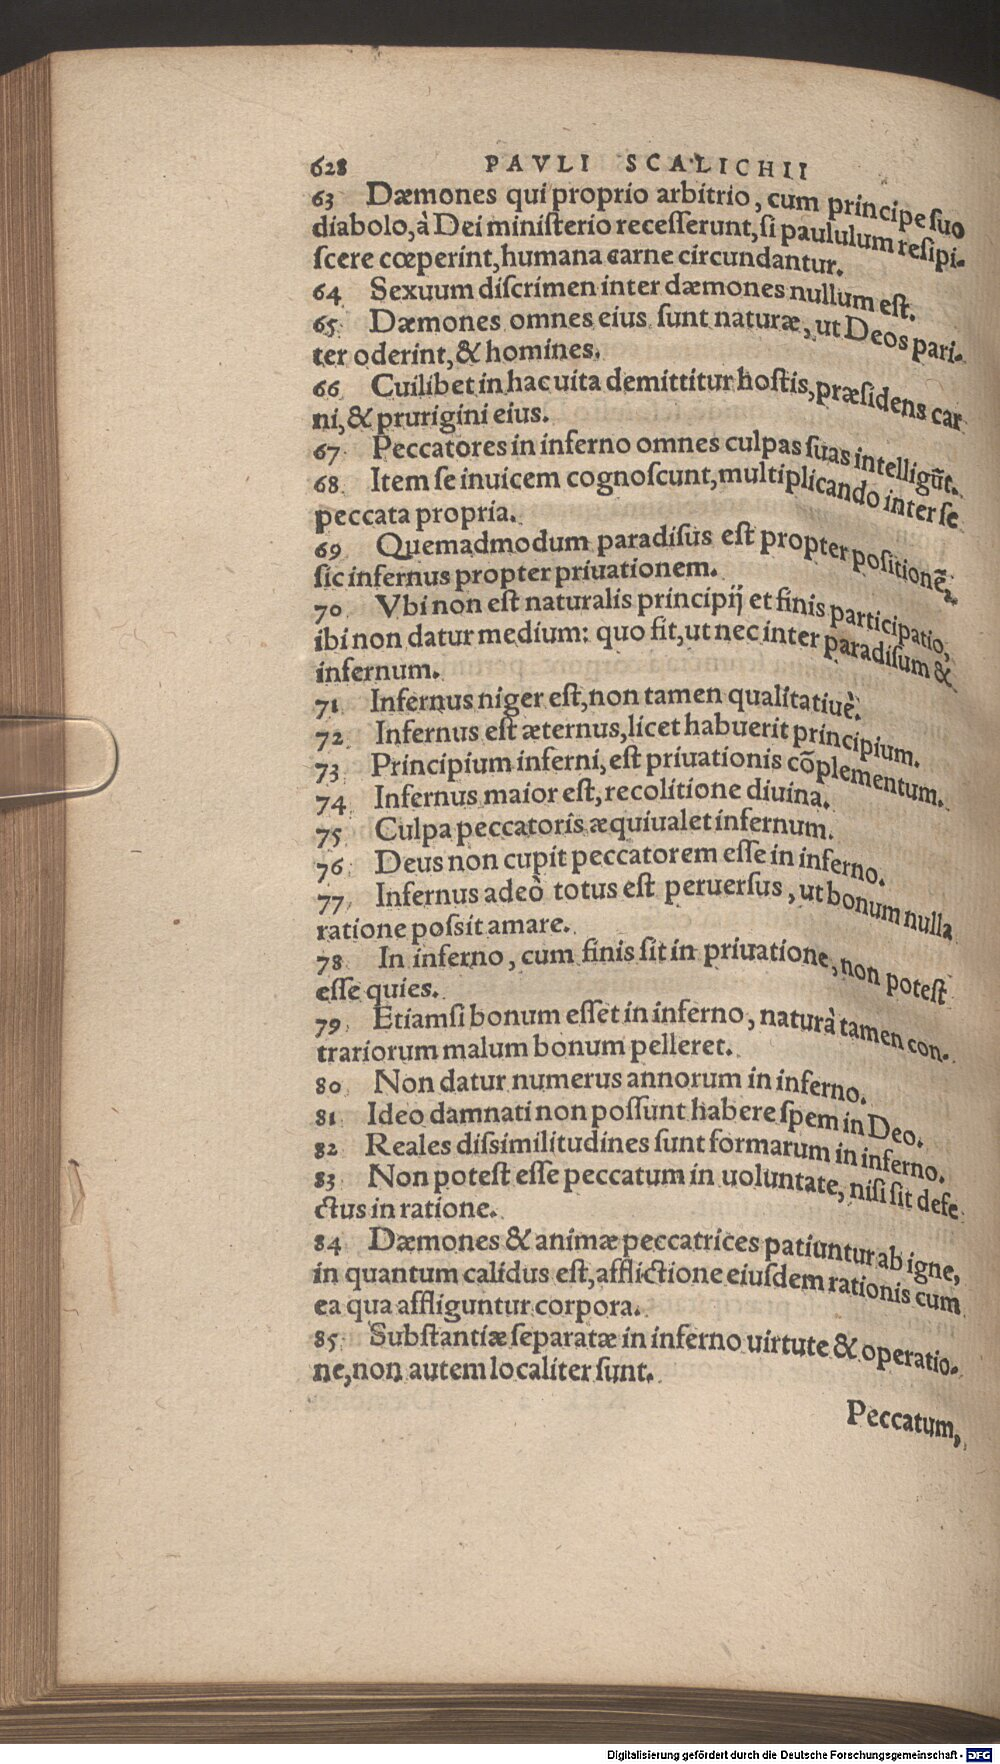 628 PAVLI SCALICHII
63 Dæmones qui proprio arbitrio, cum principe ſuo
diabolo, à Dei miniſterio receſſerunt, ſi paululum reſipi-
ſcere cœperint, humana carne circundantur.
64 Sexuum diſcrimen inter dæmones nullum eſt.
65 Dæmones omnes eius ſunt naturæ, ut Deos pari-
ter oderint, & homines.
66 Cuilibet in hac uita demittitur hoſtis, præſidens car
ni, & prurigini eius.
67 Peccatores in inferno omnes culpas ſuas intelligūt.
68 Item ſe inuicem cognoſcunt, multiplicando inter ſe
peccata propria.
69 Quemadmodum paradiſus eſt propter poſitionē,
ſic infernus propter priuationem.
70 Vbi non eſt naturalis principij et finis participatio,
ibi non datur medium: quo fit, ut nec inter paradiſum &
infernum.
71 Infernus niger eſt, non tamen qualitatiuè.
72 Infernus eſt æternus, licet habuerit principium.
73 Principium inferni, eſt priuationis cōplementum.
74 Infernus maior eſt, recolitione diuina.
75 Culpa peccatoris æquiualet infernum.
76 Deus non cupit peccatorem eſſe in inferno.
77 Infernus adeò totus eſt peruerſus, ut bonum nulla
ratione poſsit amare.
78 In inferno, cum finis ſit in priuatione, non poteſt
eſſe quies.
79 Etiamſi bonum eſſet in inferno, naturà tamen con-
trariorum malum bonum pelleret.
80 Non datur numerus annorum in inferno.
81 Ideo damnati non poſſunt habere ſpem in Deo.
82 Reales diſsimilitudines ſunt formarum in inferno.
83 Non poteſt eſſe peccatum in uoluntate, niſi ſit defe
ctus in ratione.
84 Dæmones & animæ peccatrices patiuntur ab igne,
in quantum calidus eſt, afflictione eiuſdem rationis cum
ea qua affliguntur corpora.
85 Subſtantiæ ſeparatæ in inferno uirtute & operatio-
ne, non autem localiter ſunt.
Peccatum,
Digitalisierung gefördert durch die Deutsche Forschungsgemeinschaft - DFG